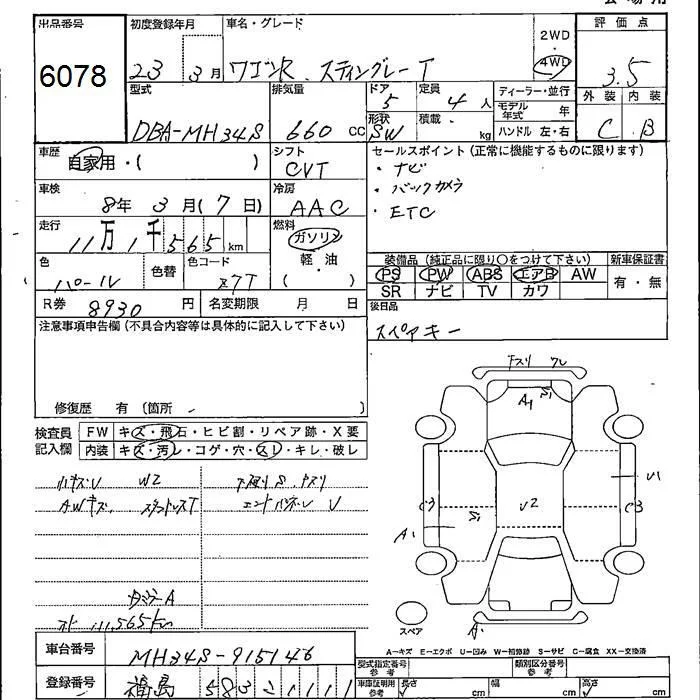 出品番号 初度登録年月 車名・グレード 評価点
6078 23年 3月 ワゴンR スティングレー T 2WD 4WD 3.5
型式 排気量 ドア 定員 ディーラー・並行 外装 内装
DBA-MH34S 660 CC 5 4人 モデル年式 年 C B
形状 SW 積載 kg ハンドル 左・右
車歴 自家用・( ) シフト CVT セールスポイント(正常に機能するものに限ります)
・ナビ
車検 8年 3月(7日) 冷房 AAC ・バックカメラ
・ETC
走行 11万1千565km 燃料 ガソリン 軽・油 ( ・ )
装備品(純正品に限り○をつけて下さい) 新車保証書
色 パール 色替 色コード Z7T PS PW ABS エアB AW 有・無
SR ナビ TV カワ
R券 8930円 名変期限 月 日 後日品
注意事項申告欄(不具合内容等は具体的に記入して下さい) スペアキー
修復歴 有(箇所 )
検査員 FW キズ・飛石・ヒビ割・リペア跡・X要
記入欄 内装 キズ・汚レ・コゲ・穴・スレ・キレ・破レ
小キズU W2 下廻りS、ナスリ
AWキズ、 エンドパネル U
ナスリ
A1 S1
U1
C3 U2 C3
A1 S1
タイヤA
111,565km
スペア A
A-キズ E-エクボ U-凹み W-補修跡 S-サビ C-腐食 XX-交換済
車台番号 MH34S-915146 型式指定番号 参考 類別区分番号 参考
登録番号 福島 583 2 1111 車庫証明用 参考 長さ cm 幅 cm 高さ cm